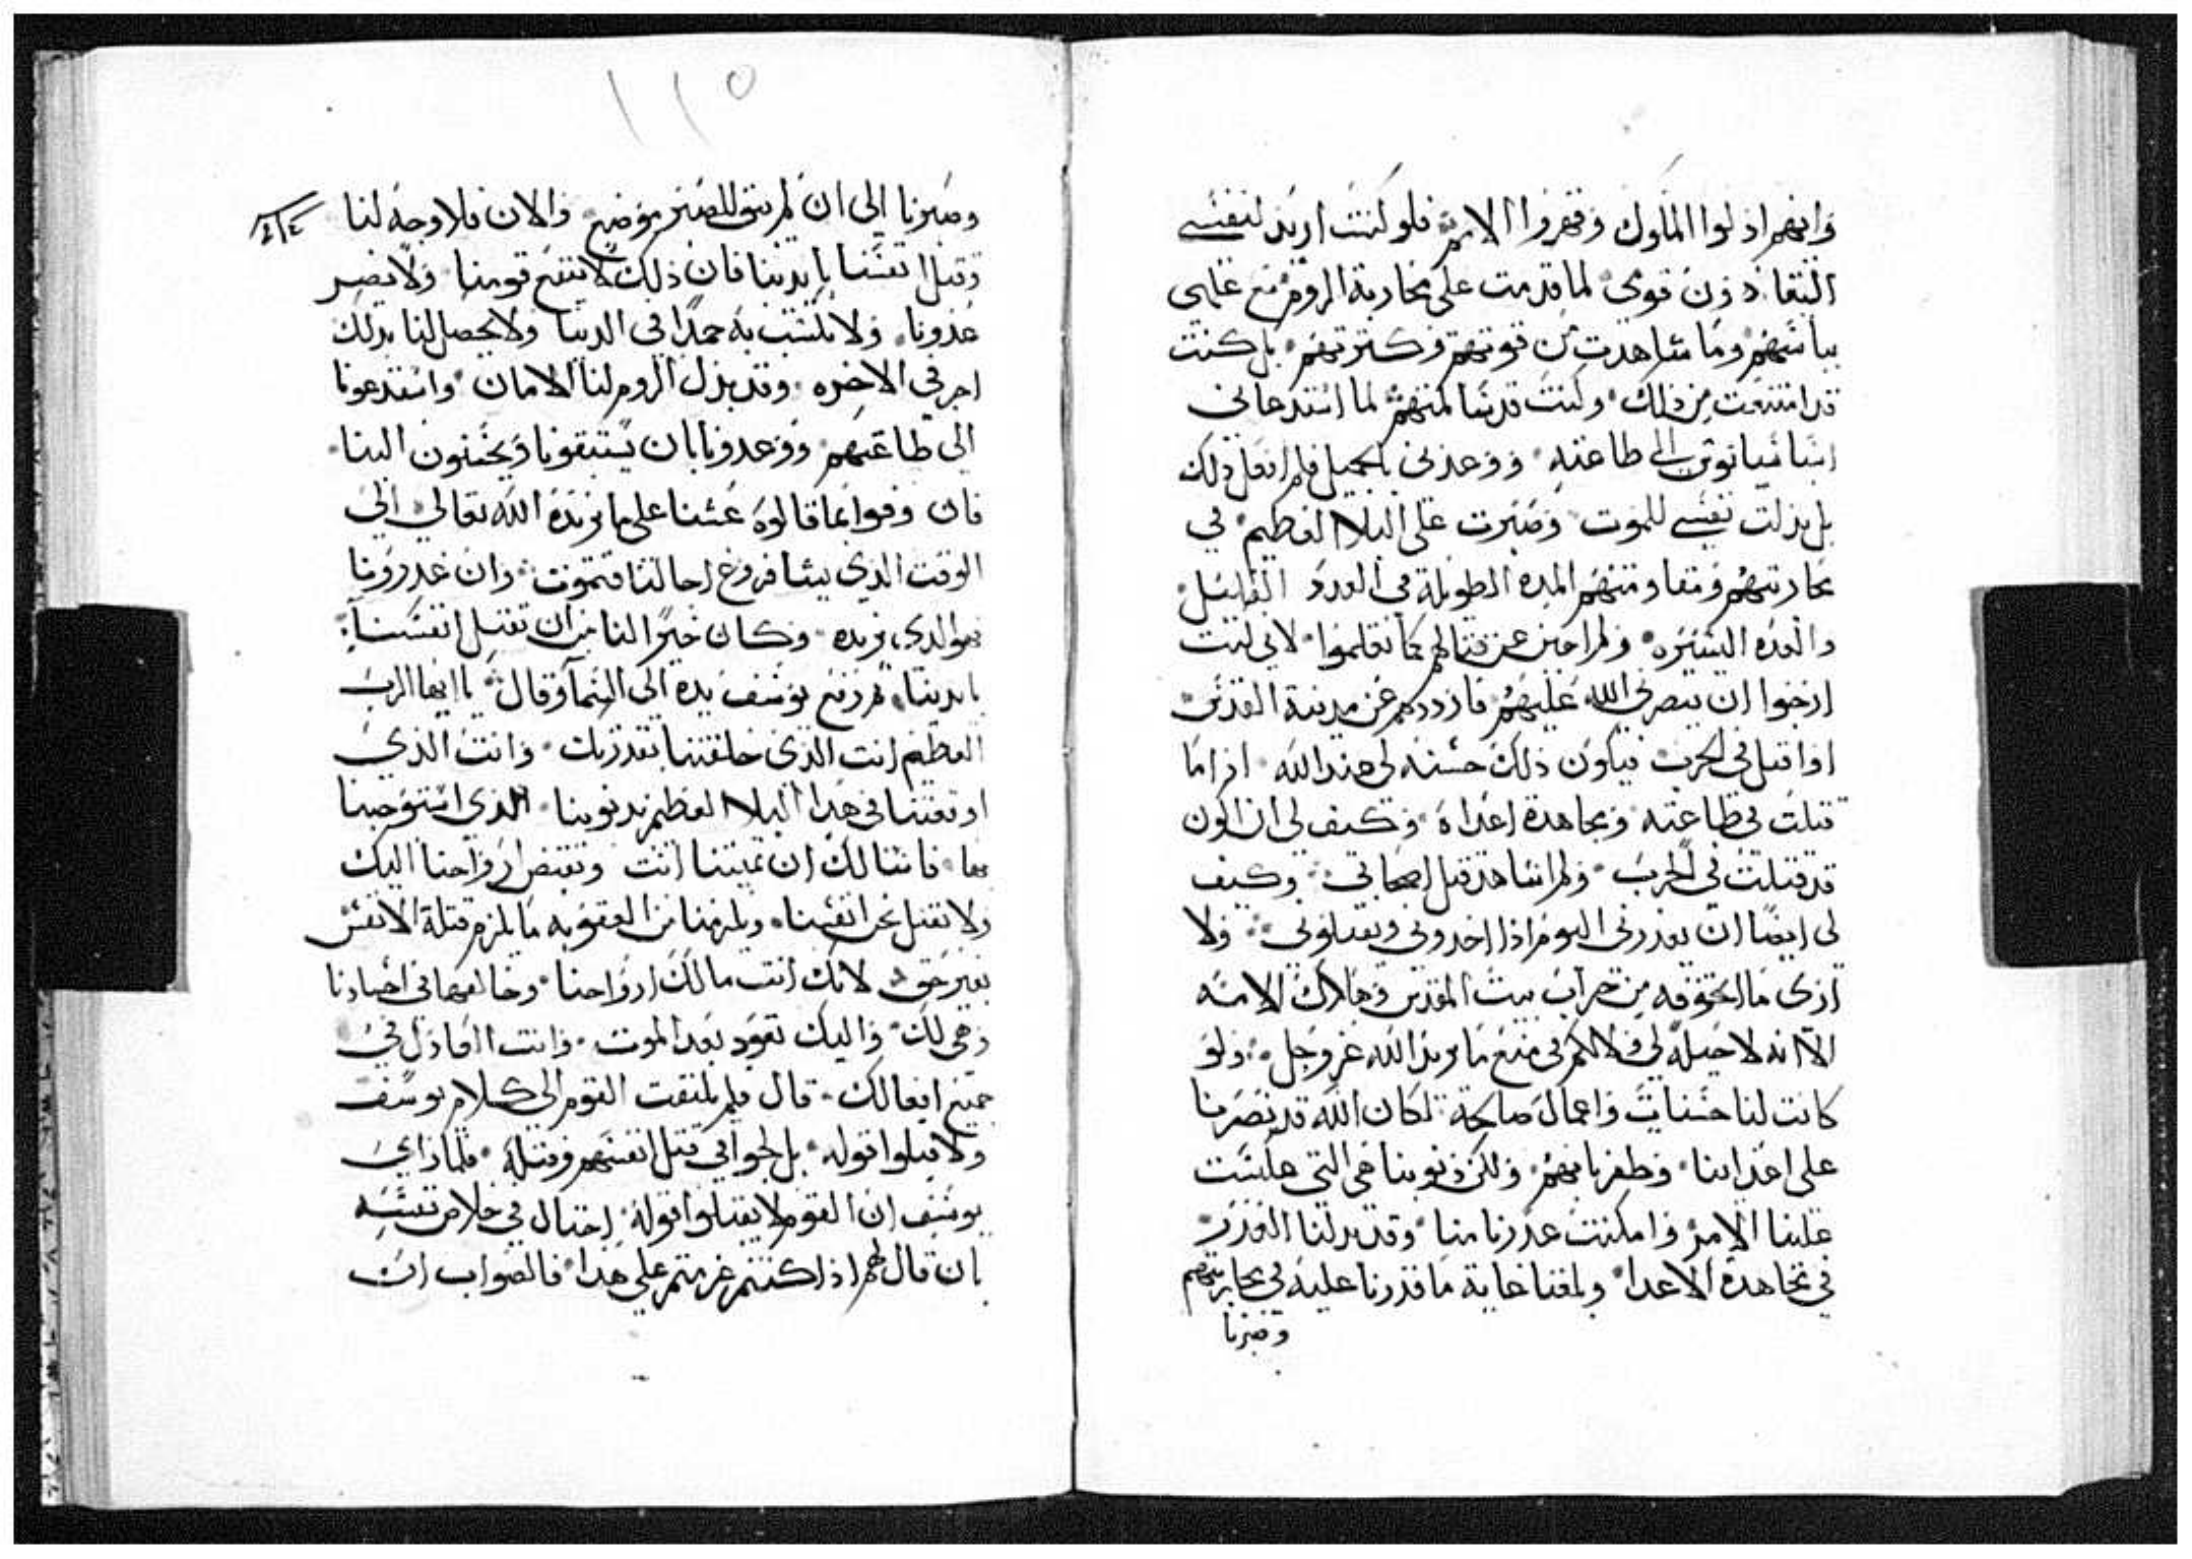 وانهم اذلوا الملوك وقهروا الامم فلو كنت اريد لنفسي
البقا دون قومي لما قدمت على محاربة الروم مع علمي
بباسهم وما شاهدت من قوتهم وكثرتهم بل كنت
قد امتنعت من ذلك وكنت قد سالمتهم لما استدعاني
اسباسيانوس الى طاعته ووعدني بالجميل فلم افعل ذلك
بل بذلت نفسي للموت وصبرت على البلا العظيم في
محاربتهم ومقاومتهم المده الطويلة في العدد القليل
والعده اليسيره ولم اجبن عن قتالهم كما تعلموا لاني كنت
ارجوا ان ينصرني الله عليهم فارددهم عن مدينة القدس
او اقتل في الحرب فيكون ذلك حسنه لي عند الله اذا ما
قتلت في طاعته ومجاهدة اعداه وكيف لي ان اكون
قد قتلت في الحرب ولم اشاهد قتل اصحابي وكيف
لي ايضا ان يعذرني اليوم اذا اخدوني ويقتلوني ولا
اري ما اتخوفه من خراب بيت المقدس وهلاك الامه
الا انه لا حيلة لي ولا لكم في منع ما يريد الله عز وجل ولو
كانت لنا حسنات واعمال صالحة لكان الله قد نصرنا
على اعداينا وظفرنا بهم ولكن ذنوبنا هي التي عكست
علينا الامر وامكنت عدونا منا وقد بدلنا القدر
في مجاهدة الاعدا وبلغنا غاية ما قدرنا عليه في محاربتهم
وصبرنا
١١٥
وصبرنا الى ان لم يبق للصبر موضع والان فلا وجه لنا
وقتل انفسنا بايدينا فان ذلك لا ينفع قومنا ولا يضر
عدونا ولا نكسب به حمدا في الدنيا ولا يحصل لنا بذلك
اجر في الاخره وقد بذل الروم لنا الامان واستدعونا
الى طاعتهم ووعدونا بان يستبقونا ويحسنون الينا
فان وفوا بما قالوه عشنا على ما يريده الله تعالي الى
الوقت الذي يشا فروغ اجالنا فنموت وان غدرونا
فهو الدي نريده وكان خيرا لنا من ان نقتل انفسنا
بايدينا ثم رفع يوسف يده الى السما وقال يا ايها الرب
العظيم انت الذي خلقتنا بقدرتك وانت الذي
اوقعتنا في هدا البلا العظيم بدنوبنا الذي استوجبنا
بها فانسالك ان تميتنا انت وتقبض ارواحنا اليك
ولا نقتل نحن انفسنا ويلزمنا من العقوبه ما يلزم قتلة الانفس
بغير حق لانك انت مالك ارواحنا وخالقها في اجسادنا
وهي لك واليك تعود بعد الموت وانت العادل في
جميع افعالك قال فلم يلتفت القوم الى كلام يوسف
ولا قبلوا قوله بل لجوا في قتل انفسهم وقتله فلما راي
يوسف ان القوم لا يقبلوا قوله احتال في خلاص نفسه
بان قال لهم اذا كنتم عزمتم على هدا فالصواب ان